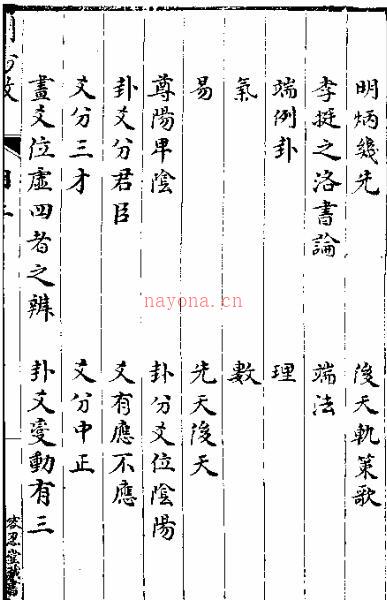 明炳幾先
後天軌策歌
李挺之洛書論
端法
端例卦
理
氣
數
易
先天後天
尊陽卑陰
卦分爻位陰陽
卦爻分君臣
爻有應不應
爻分三才
爻分中正
畫爻位虛四者之辨
卦爻變動有三
nayona.cn